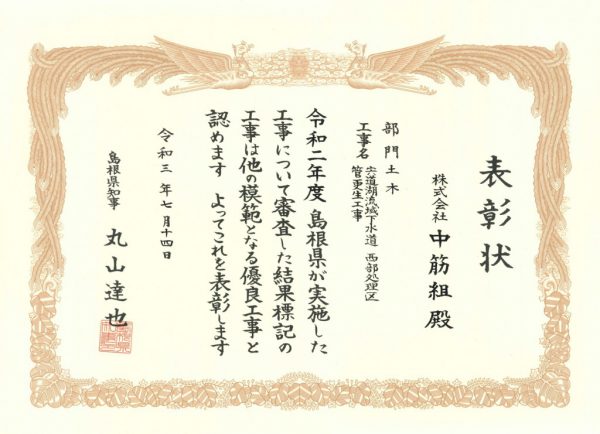 表彰状
株式会社 中筋組 殿
部門 土木
工事名 宍道湖流域下水道 西部処理区
管更生工事
令和二年度 島根県が実施した
工事について審査した結果標記の
工事は他の模範となる優良工事と
認めます よってこれを表彰します
令和三年七月十四日
島根県知事 丸山達也